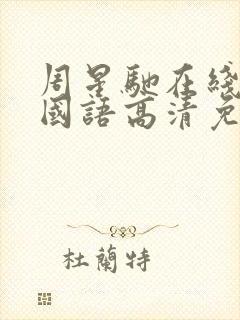 周星馳在綫
國語高清免
杜蘭特